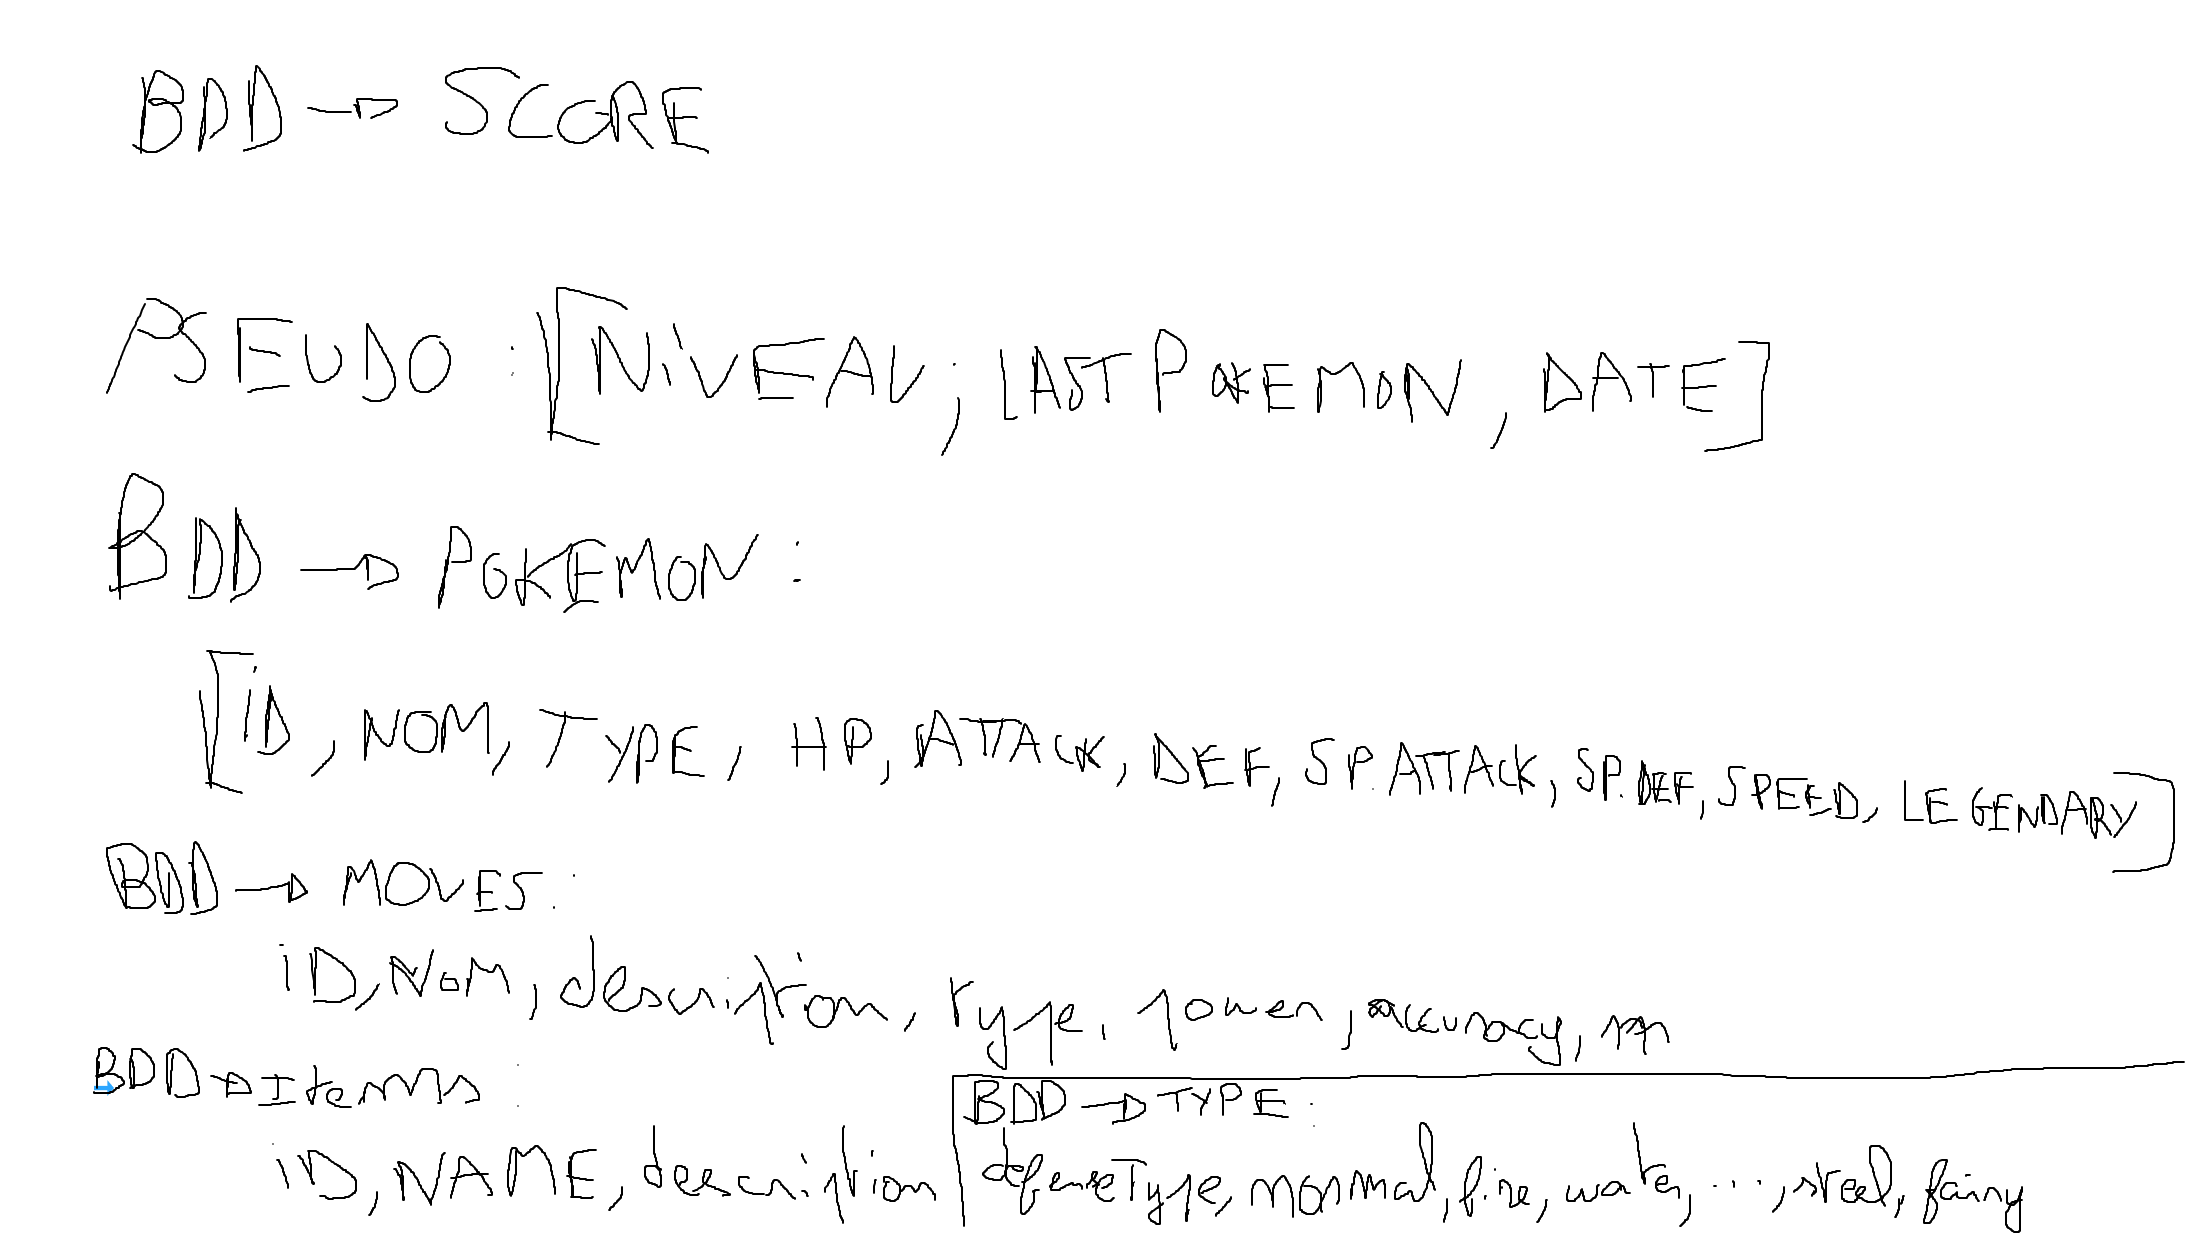 BDD → SCORE
PSEUDO : [NiVEAU ; LAST POKEMON , DATE]
BDD → POKEMON :
[iD , NOM, TYPE, HP, ATTACK, DEF, SP.ATTACK, SP.DEF, SPEED, LEGENDARY]
BDD → MOVES :
iD, NOM, description, type, power, accuracy, pp
BDD → Items :
iD, NAME, description
BDD → TYPE :
defenseType, normal, fire, water, ..., steel, fairy